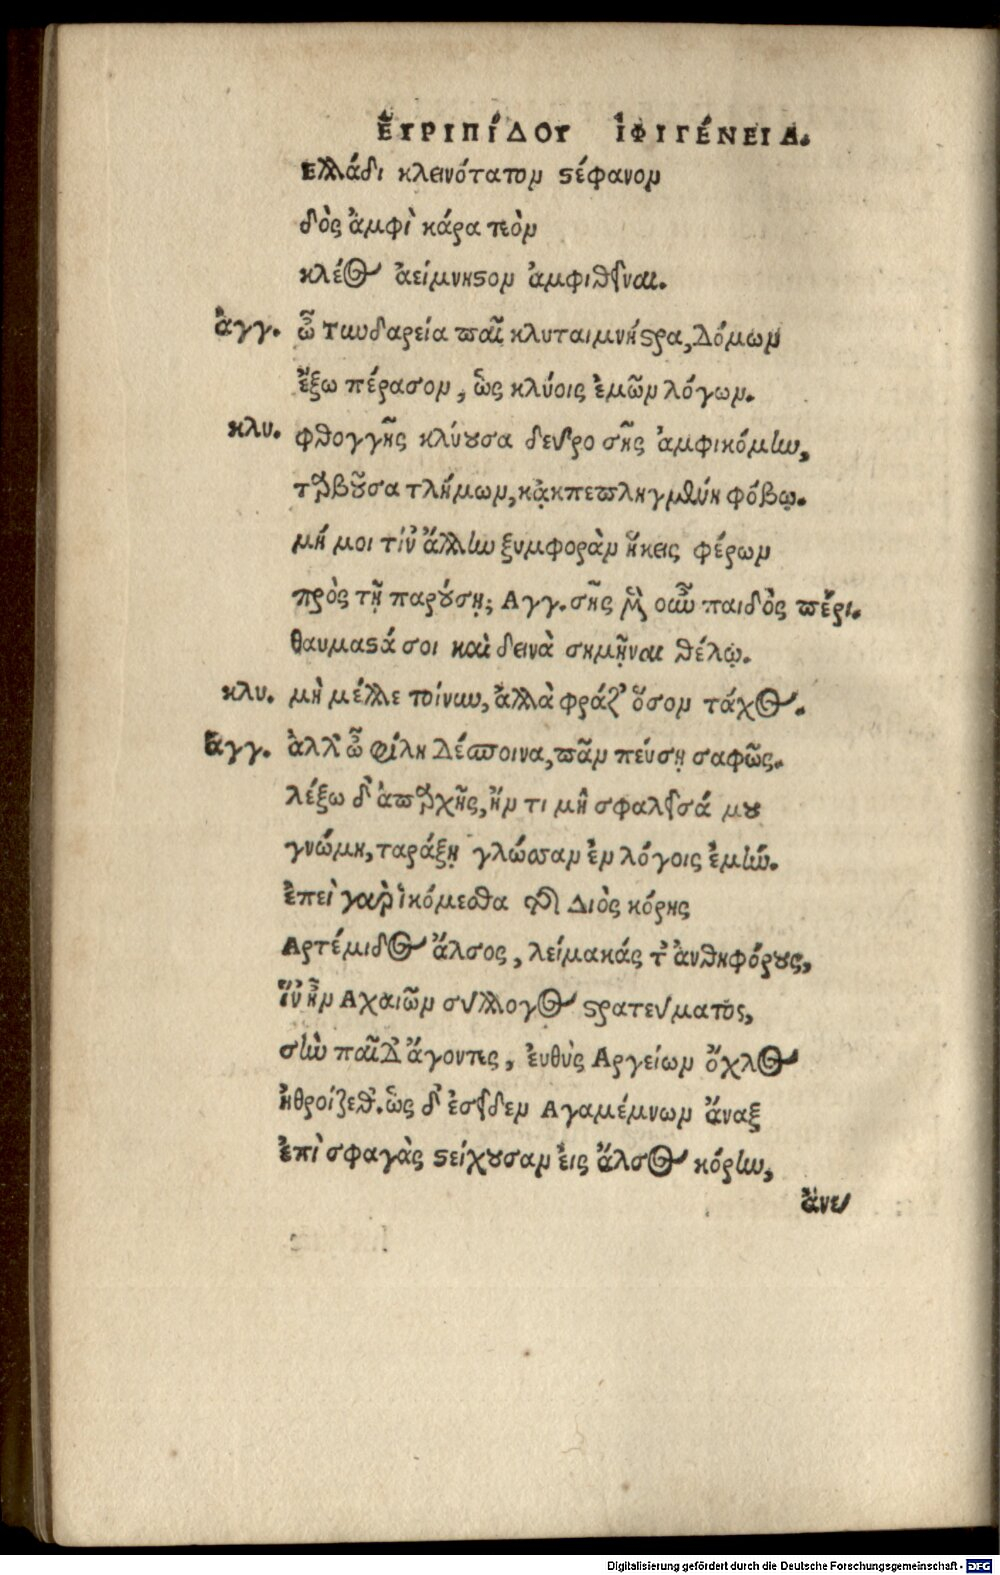 ἘΥΡΙΠΊΔΟΥ ἸΦΙΓΈΝΕΙΑ.
Ελλάδι κλεινότατον στέφανον
δὸς ἀμφὶ κάρα τεὸν
κλέος ἀείμνηστον ἀμφιθεῖναι.
ἀγγ. ὦ Τωυδαρεία παῖ κλυταιμνήστρα, Δόμων
ἔξω πέρασον, ὡς κλύοις ἐμῶν λόγων.
κλυ. φθογγῆς κλύουσα δεῦρο σῆς ἀφικόμην,
ταρβοῦσα τλήμων, κᾀκπεπληγμένη φόβῳ.
μή μοι τίν' ἄλλην ξυμφορὰν ἥκεις φέρων
πρὸς τῇ παρούσῃ; Αγγ. σῆς μὲν οὖν παιδὸς πέρι.
θαυμαστά σοι καὶ δεινὰ σημῇναι θέλω.
κλυ. μὴ μέλλε τοίνυν, ἀλλὰ φράζ' ὅσον τάχος.
ἀγγ. ἀλλ' ὦ φίλη Δέσποινα, πᾶν πεύσῃ σαφῶς.
λέξω δ' ἀπ' ἀρχῆς, ἤν τι μὴ σφαλεῖσά μου
γνώμη, ταράξῃ γλῶσσαν ἐν λόγοις ἐμήν.
ἐπεὶ γὰρ ἱκόμεσθα τῆς Διὸς κόρης
Αρτέμιδος ἄλσος, λείμακάς τ' ἀνθηφόρους,
ἵν' ἦν Αχαιῶν σύλλογος στρατεύματος,
σὴν παῖδ' ἄγοντες, ἐυθὺς Αργείων ὄχλος
ἠθροίζεθ'. ὡς δ' ἐσεῖδεν Αγαμέμνων ἄναξ
ἐπὶ σφαγὰς στείχουσαν ἐις ἄλσος κόρην,
ἄνευ
Digitalisierung gefördert durch die Deutsche Forschungsgemeinschaft - DFG